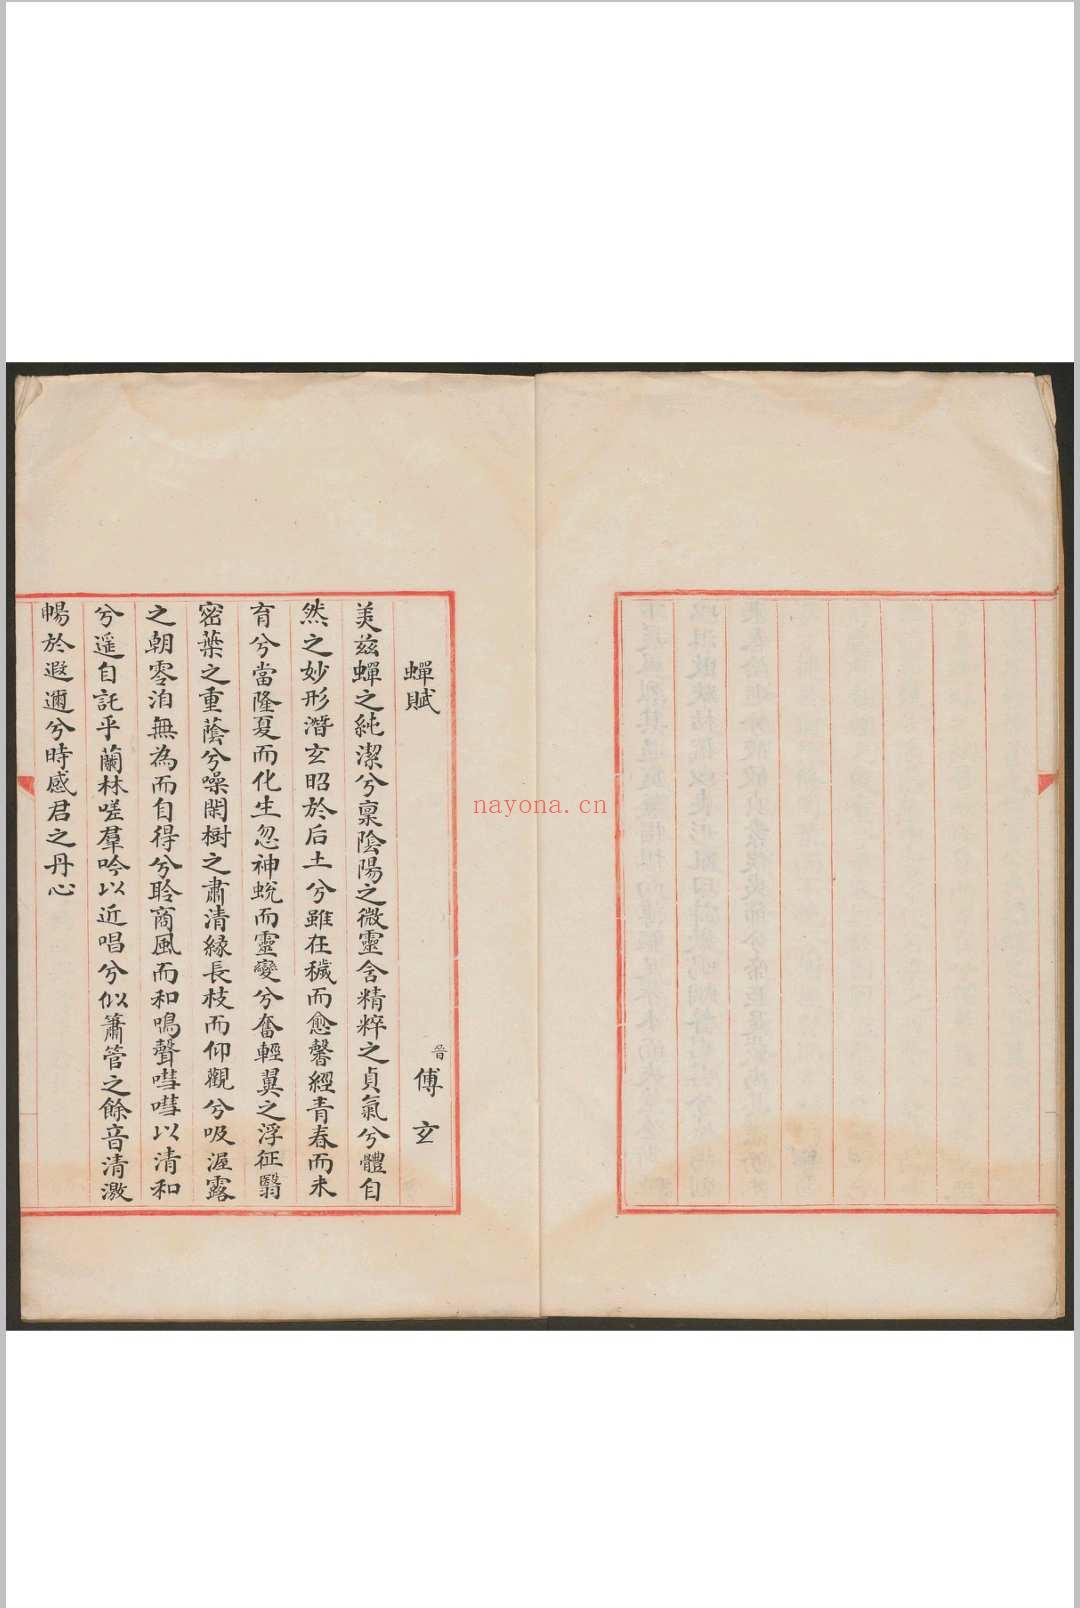 蟬賦
晉 傅玄
美茲蟬之純潔兮稟陰陽之微靈含精粹之貞氣兮體自
然之妙形潛玄昭於后土兮雖在穢而愈馨經青春而未
育兮當隆夏而化生忽神蛻而靈變兮奮輕翼之浮征翳
密葉之重蔭兮噪閑樹之肅清緣長枝而仰觀兮吸渥露
之朝零泊無為而自得兮聆商風而和鳴聲嘒嘒以清和
兮遥自託乎蘭林嗟羣吟以近唱兮似簫管之餘音清激
暢於遐邇兮時感君之丹心
nayona.cn